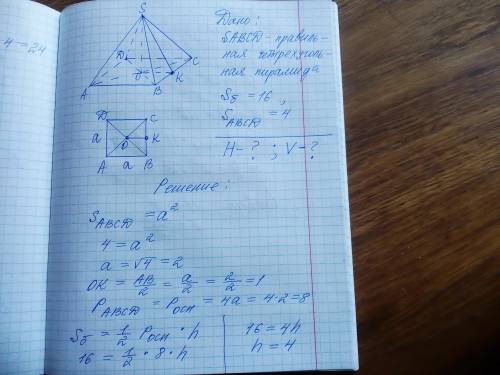 4=24
S
D
C
O
K
A
B
D
C
a
O
K
A
a
B
Дано:
SABCD - правиль-
ная четрехуголь-
ная пирамида
Sб = 16,
SABCD = 4
H-? ; V-?
Решение:
SABCD = a²
4 = a²
a = √4 = 2
OK = AB/2 = a/2 = 2/2 = 1
PABCD = Pосн = 4a = 4·2 = 8
Sб = 1/2 Pосн · h
16 = 1/2 · 8 · h
16 = 4h
h = 4